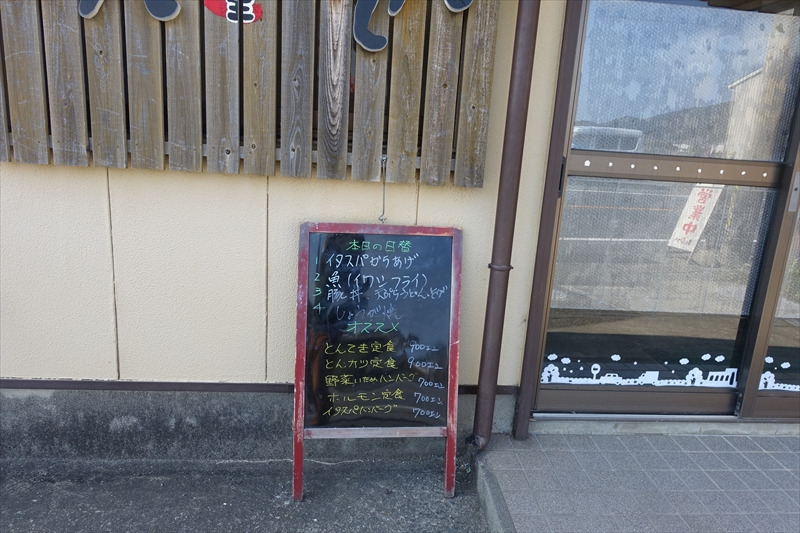 営業中
本日の日替
1 イタスパからあげ
2 魚(イワシフライ)
3 豚丼
4 しょうが焼
オススメ
とんてき定食 900エン
とんカツ定食 900エン
野菜いためハンバーグ 700エン
ホルモン定食 700エン
イタスパハンバーグ 700エン